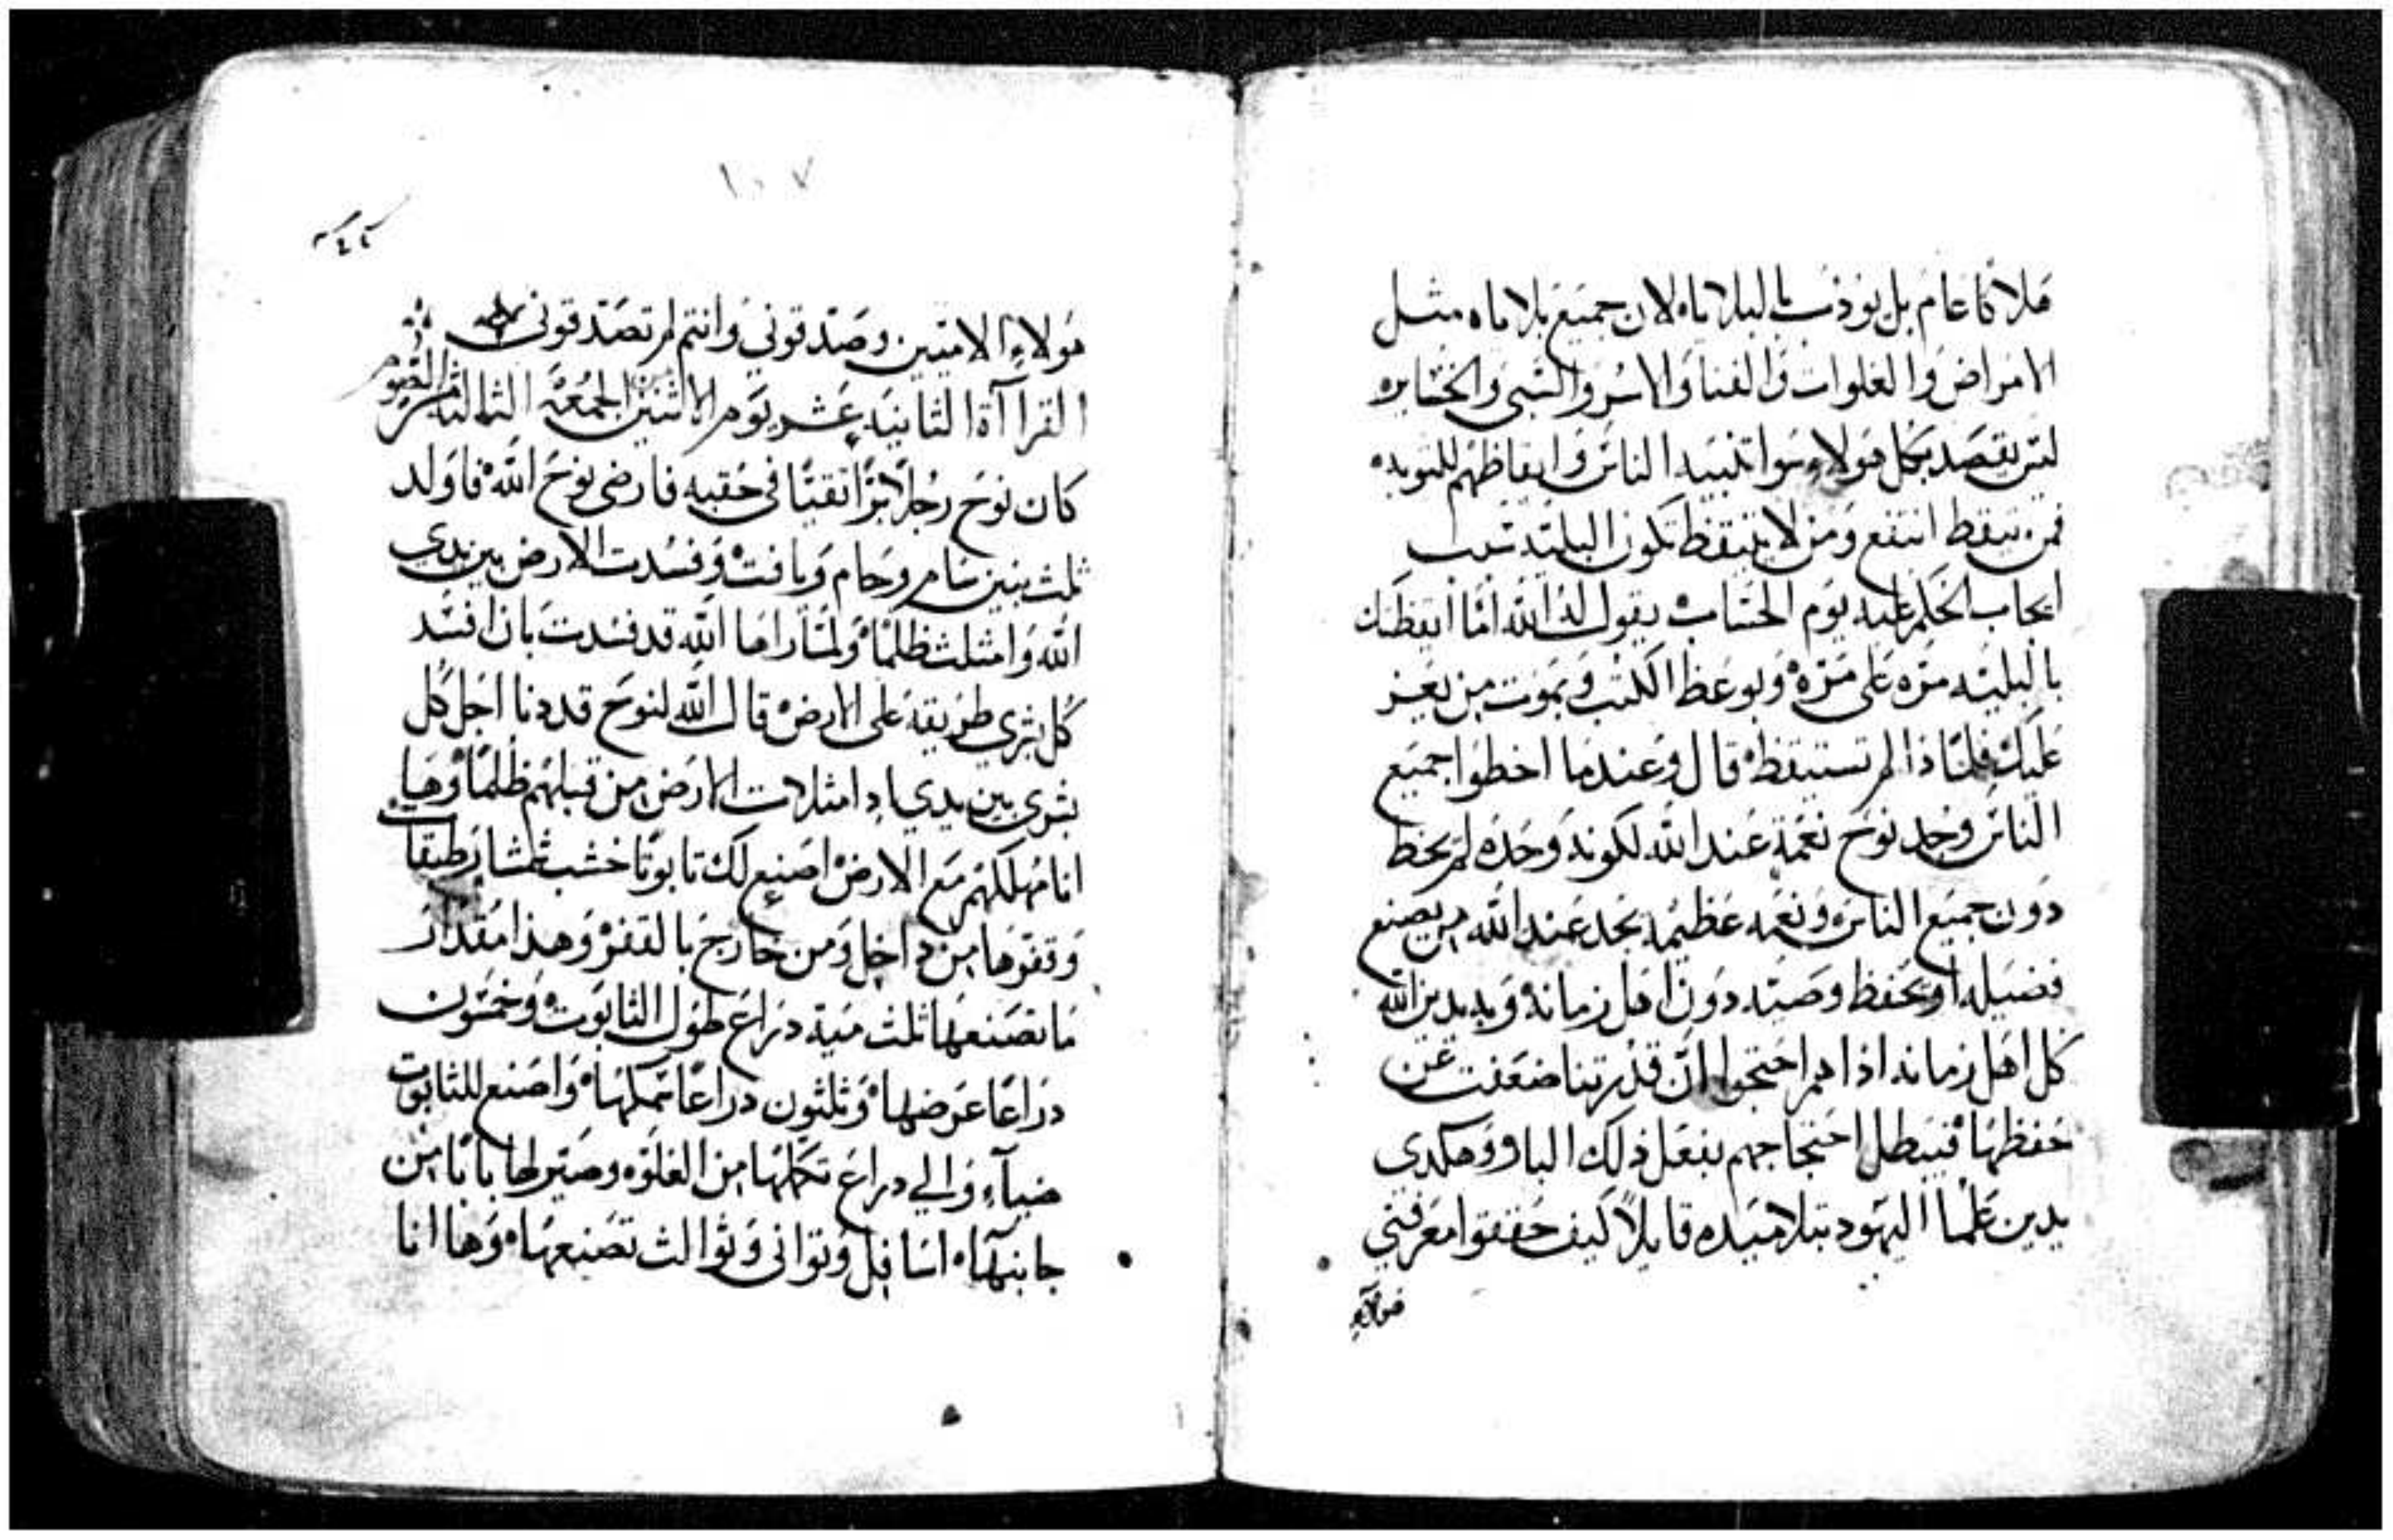 هلاكا عام بل يوذب بالبلاياه لان جميع بلاياه مثل
الامراض والغلوات والفنا والاسر والسبى والخسايره
ليس يقصد بكل هولاء سوا تنبيه الناس وايقاظهم للتوبه
فمن تيقظ انتفع ومن لا يتيقظ تكون البليه سبب
ايجاب الحكم عليه يوم الحساب يقول له الله اما ايقظتك
بالبليه مره على مره وبوعظ الكتب وبموت من يعز
عليك فلماذا لم تستيقظ قال وعندما اخطوا جميع
الناس وجد نوح نعمة عند الله لكونه وحده لم يخط
دون جميع الناس ونعمه عظيمه يجد عند الله من يصنع
فضيله او يحفظ وصيه دون اهل زمانه وبه يدين الله
كل اهل زمانه اذا هم احتجوا ان قدرتنا ضعفت عن
حفظها فيبطل احتجاجهم بفعل ذلك البار وهكدى
يدين علما اليهود بتلاميده قايلاً كيف حققوا معرفتي
هولاء
١٠٧
هولاء الاميين وصدقوني وانتم لم تصدقوني
القراآة الثانيه عشر يوم الاثنين الجمعة الثالثه من الصوم
كان نوح رجلاً بزا تقيتا في حقبه فارضى نوح الله فاولد
ثلث بنين سام وحام ويافت وفسدت الارض بين يدي
الله وامثلت ظلما ولما راها الله قد فسدت بان افسد
كل بشري طريقه على الارض قال الله لنوح قد دنا اجل كل
بشرى بين يدي اد امثلات الارض من قبلهم ظلما وها
انا مهلكهم مع الارض اصنع لك تابوتا خشب طبقات
وقفرها من داخل ومن خارج بالقفر وهذا مقدار
ما تصنعها ثلث مية دراع طول الثابوت وخمسون
دراعا عرضها وثلثون دراعا سمكها واصنع للثابوت
ضيآء والي دراع تكملها من الغلوه وصير لها بابا من
جانبها اسافل وثواني وثوالث تصنعها وها انا